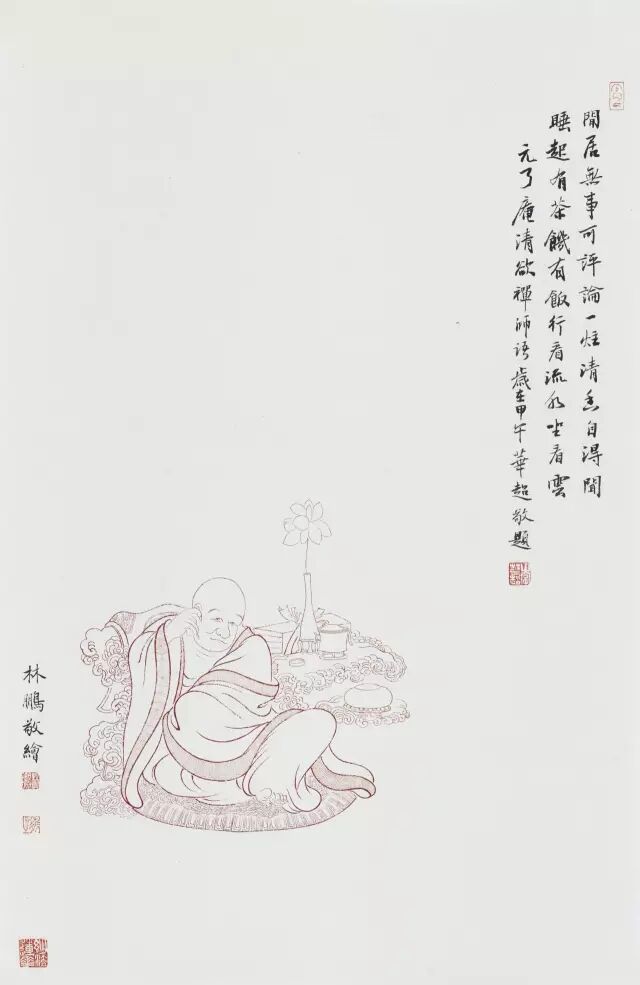 閒居無事可評論一炷清香自得聞
睡起有茶饑有飯行看流水坐看雲
元了庵清欲禪師語歲在甲午華超敬題
林鵬敬繪